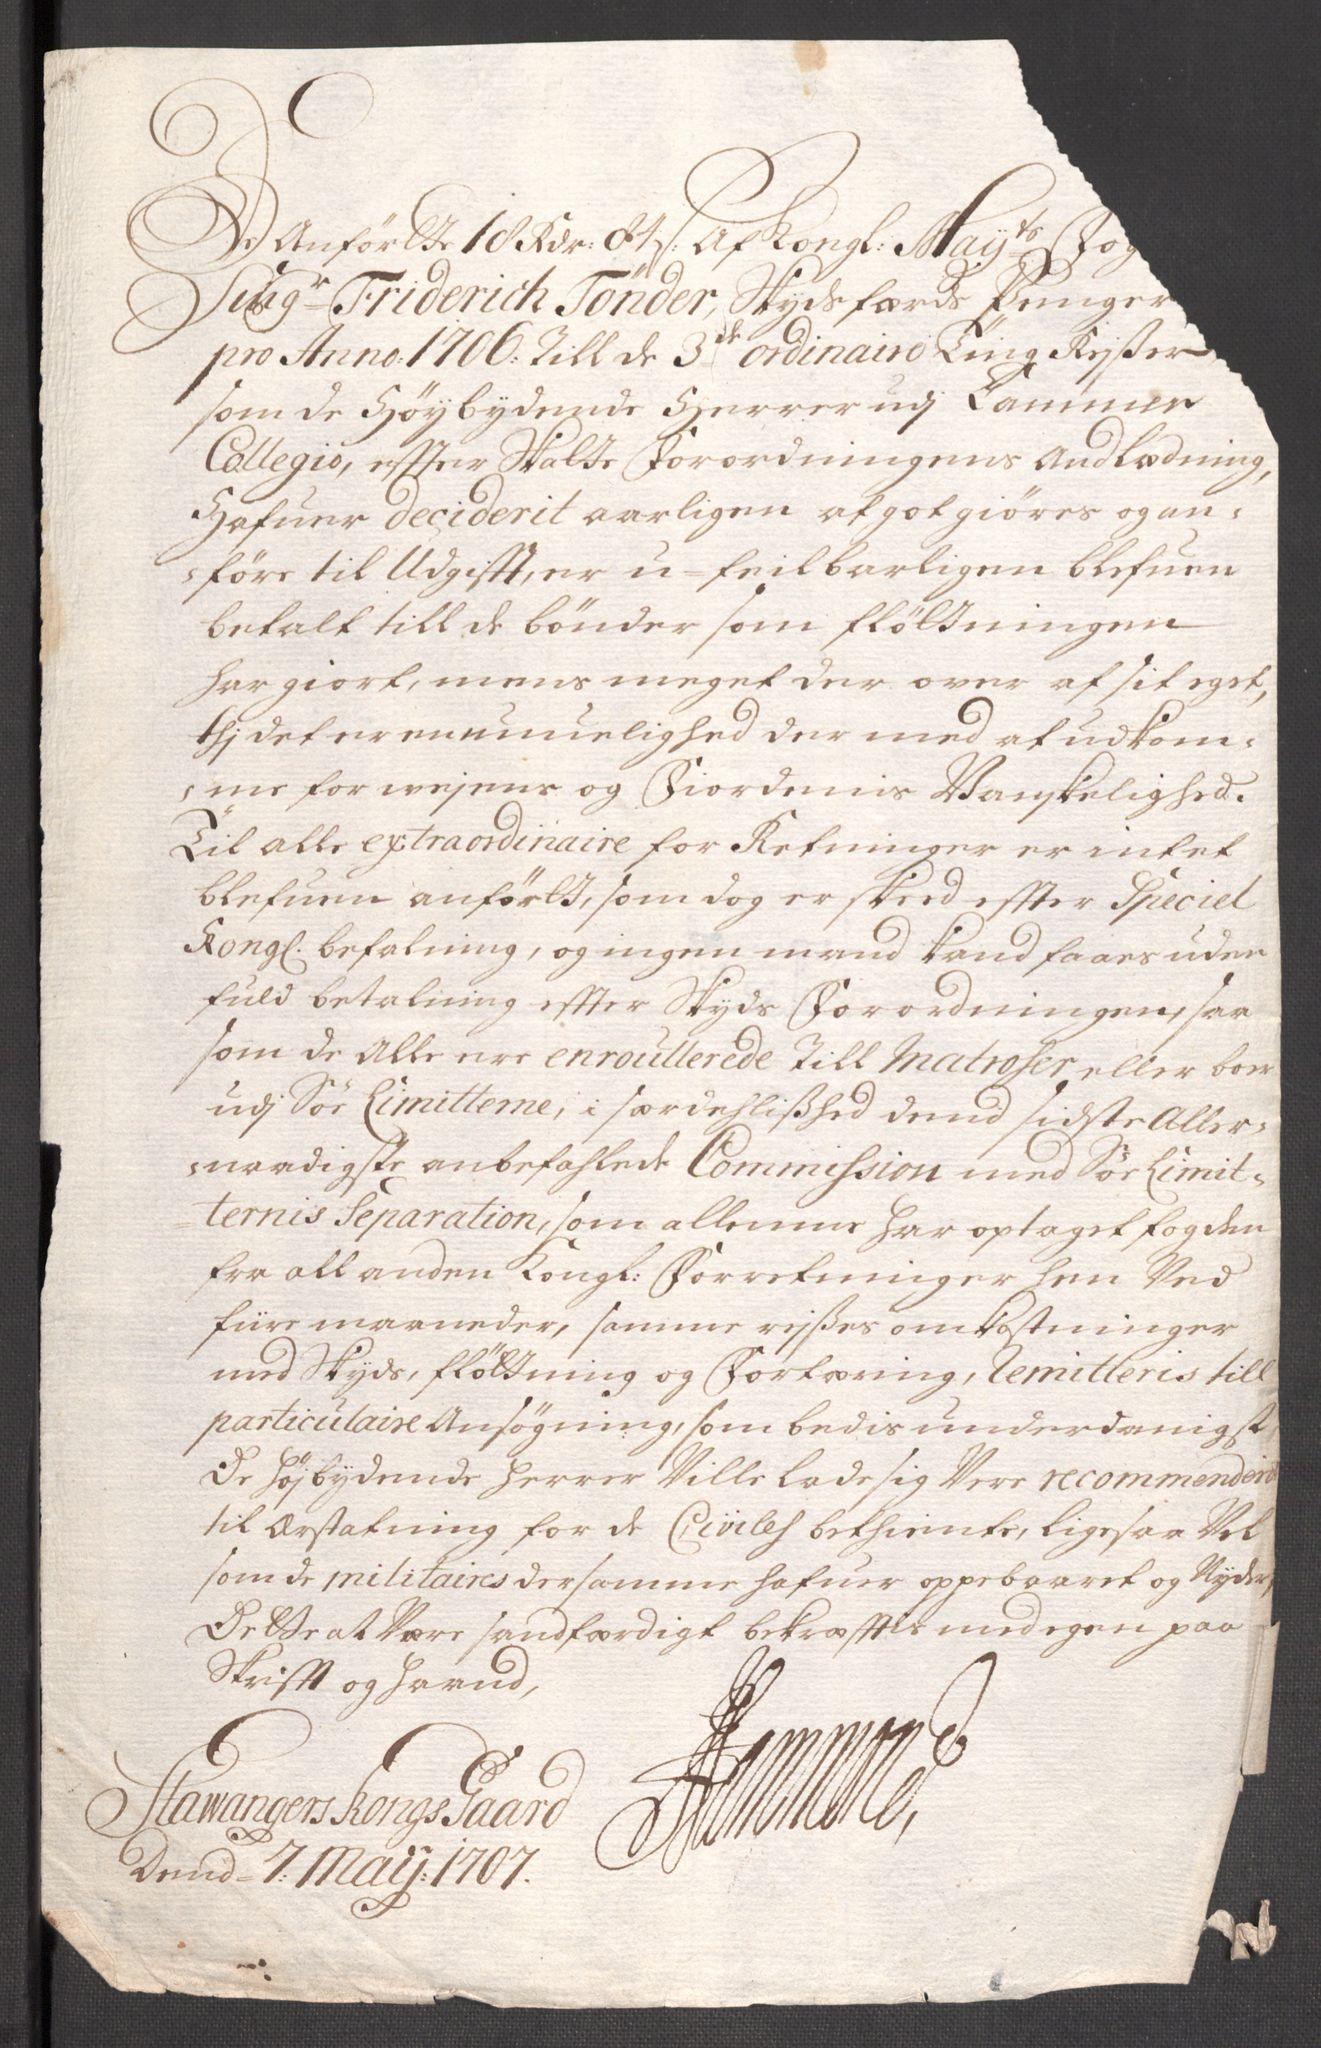 De Anförtte 18 Rdr: 84 s: Af Kongl: Mayts Fog
Sing.r Friderich Tönder, Skydsfærds Penger
pro Anno: 1706: Till de 3de ordinaire Ting Reißer
som de Höybydende Herrer udj Cammer
Collegio, effter Skatte Forordningens Andledning,
Hafuer deciderit aarligen at godtgiöres og an-
-före til Udgifft, er u-feilbarligen blefuen
betalt till de bönder som flötningen
har giort, mens meget der over af sit eget,
thj det er en umuelighed der med at udkom-
-me for wejens og Fiordenis Vanskelighed.
Til alle extraordinaire for Retninger er intet
blefuen anfört, som dog er skeed effter Speciel
Kongl. befalning, og ingen mand kand faaes uden
fuld betalning effter Skyds Forordningen, saa
som de Alle ere enroullerede till Matroser eller boer
udj Söe Limitterne, i særdehlißhed dend sidste Aller-
-naadigste anbefahlede Commission med Söe Limit-
-ternis Separation, som allenne har optaget fogden
fra all anden Kongl: Forretninger hen Ved
fiire maaneder, samme reißes omkostninger
med Skyds, flötning og Fortæring, remitteris till
particulaire Ansögning, som bedis underdanigst,
De Höjbydende Herrer Ville lade sig Vere recommenderit
til Erstatning for de Civiles bethiente, ligesaa Vel
som de militaires dersamme hafuer oppebaaret og Nyder,
Dette at Være sandfærdigt bekræfftis med egen paa
Skrifft og haand,
Stawangers Kongs Gaard
Dend 7: Maij: 1707.